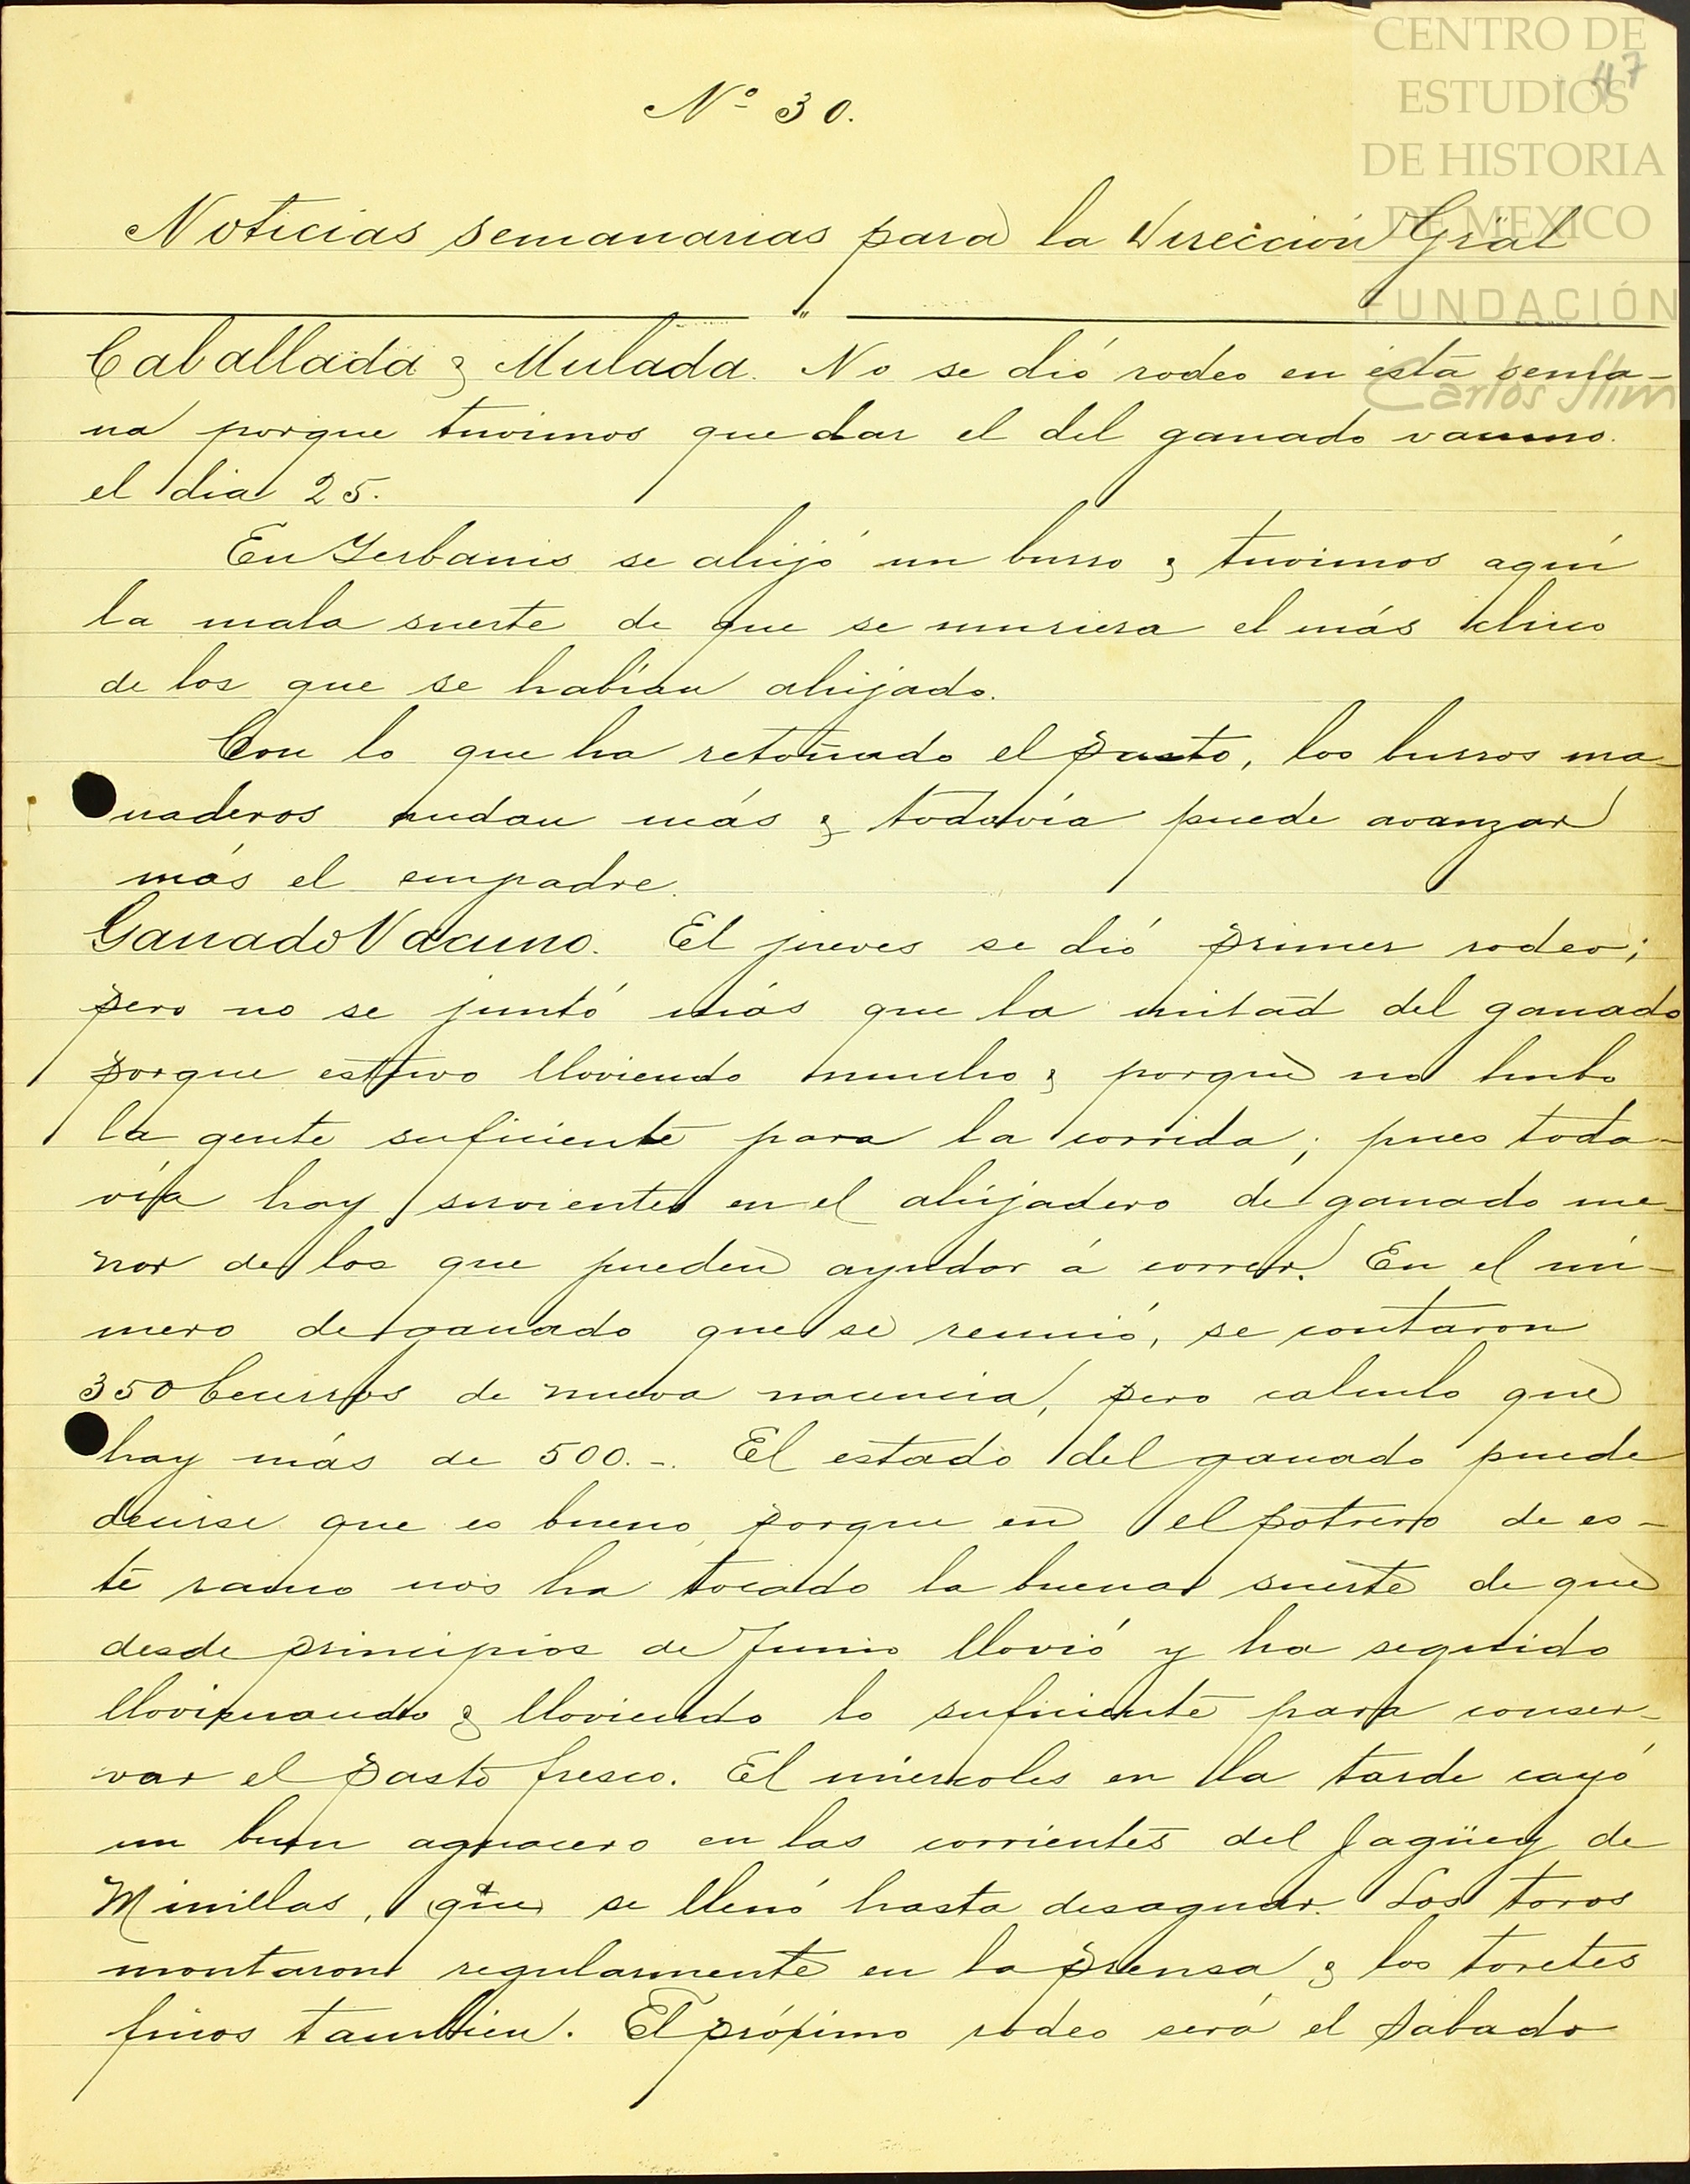 CENTRO DE
ESTUDIOS
DE HISTORIA
DE MEXICO
FUNDACIÓN
Carlos Slim
47
Nº 30.
Noticias semanarias para la Dirección Gral
Caballada y Mulada. No se dió rodeo en esta sema-
na porque tuvimos que dar el del ganado vacuno.
el dia 25.
En Yerbanis se ahijó un burro y tuvimos aquí
la mala suerte de que se muriera el más chico
de los que se habían ahijado.
Con lo que ha retoñado el pasto, los burros ma-
naderos andan más y todavía puede avanzar
más el empadre.
Ganado Vacuno. El jueves se dió primer rodeo;
pero no se juntó más que la mitad del ganado
porque estuvo lloviendo mucho y porque no hubo
la gente suficiente para la corrida; pues toda-
vía hay sirvientes en el ahijadero de ganado me-
nor de los que pueden ayudar á correr. En el nú-
mero de ganado que se reunió, se contaron
350 becerros de nueva nacencia, pero calculo que
hay más de 500.-. El estado del ganado puede
decirse que es bueno, porque en el potrero de es-
te ramo nos ha tocado la buena suerte de que
desde principios de Junio llovió y ha seguido
lloviznando y lloviendo lo suficiente para conser-
var el pasto fresco. El miércoles en la tarde cayó
un buen aguacero en las corrientes del Jagüey de
Minillas, que se llenó hasta desaguar. Los toros
montaron regularmente en la prensa y los toretes
finos tambien. El próximo rodeo será el Sabado